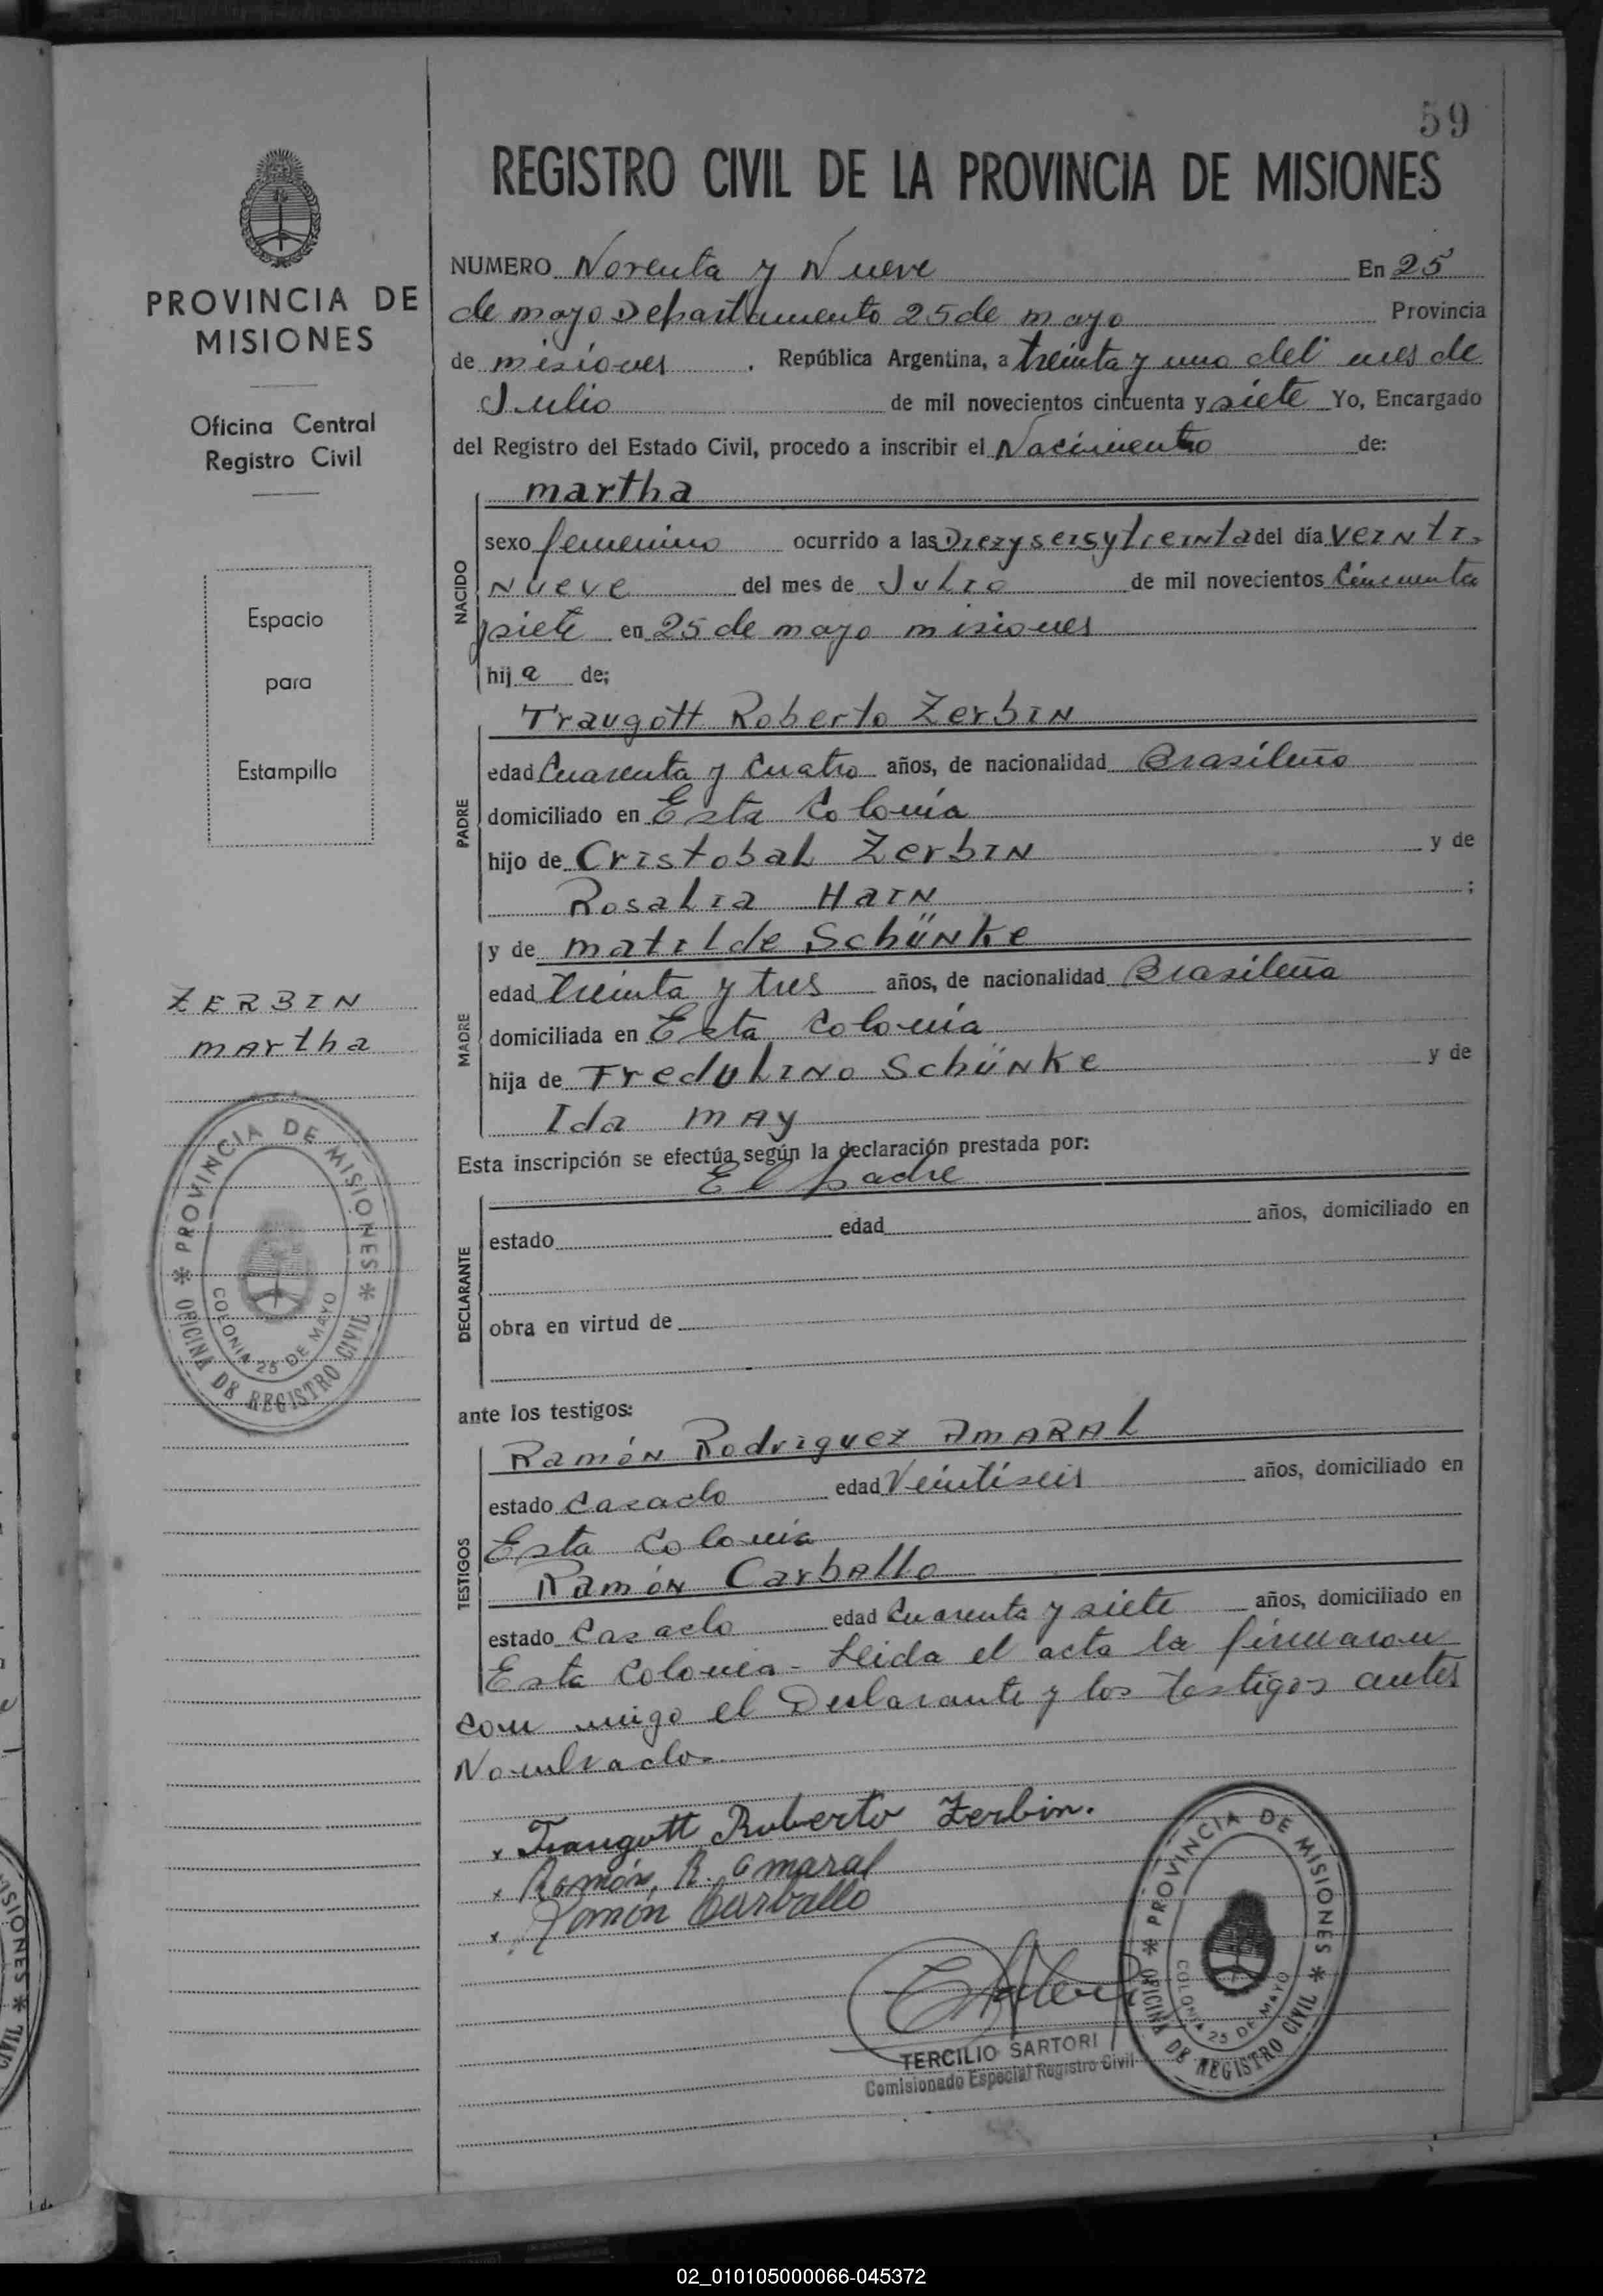 59
REGISTRO CIVIL DE LA PROVINCIA DE MISIONES
PROVINCIA DE
MISIONES
Oficina Central
Registro Civil
Espacio
para
Estampilla
ZERBIN
martha
PROVINCIA DE MISIONES
OFICINA DE REGISTRO CIVIL
COLONIA 25 DE MAYO
NUMERO Noventa y Nueve En 25
de mayo Departamento 25 de mayo Provincia
de misiones . República Argentina, a treinta y uno del mes de
Julio de mil novecientos cincuenta y siete Yo, Encargado
del Registro del Estado Civil, procedo a inscribir el Nacimiento de:
NACIDO
martha
sexo femenino ocurrido a las Diez y seis y treinta del día veinti-
Nueve del mes de Julio de mil novecientos cincuenta
y siete en 25 de mayo misiones
hija de;
PADRE
Traugott Roberto Zerbin
edad Cuarenta y cuatro años, de nacionalidad Brasileño
domiciliado en Esta Colonia
hijo de Cristobal Zerbin y de
Rosalia Hain ;
MADRE
y de matilde Schünke
edad treinta y tres años, de nacionalidad Brasileña
domiciliada en Esta Colonia
hija de Fredolino Schünke y de
Ida may
Esta inscripción se efectúa según la declaración prestada por:
DECLARANTE
El padre
estado edad años, domiciliado en
obra en virtud de
ante los testigos:
TESTIGOS
Ramón Rodriguez Amaral
estado casado edad Veintiseis años, domiciliado en
Esta Colonia
Ramón Carballo
estado casado edad cuarenta y siete años, domiciliado en
Esta Colonia - Leida el acta la firmaron
con migo el Declarante y los testigos antes
Nombrados.
x Traugott Roberto Zerbin.
x Ramón, R. Amaral
x Ramón Carballo
TERCILIO SARTORI
Comisionado Especial Registro Civil
PROVINCIA DE MISIONES
OFICINA DE REGISTRO CIVIL
COLONIA 25 DE MAYO
02_010105000066-045372